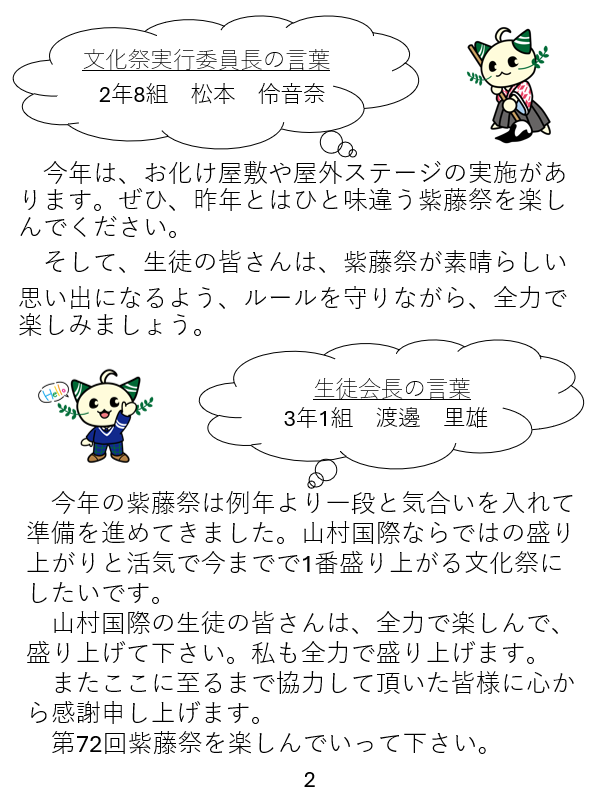 文化祭実行委員長の言葉
2年8組　松本　伶音奈
今年は、お化け屋敷や屋外ステージの実施があ
ります。ぜひ、昨年とはひと味違う紫藤祭を楽し
んでください。
そして、生徒の皆さんは、紫藤祭が素晴らしい
思い出になるよう、ルールを守りながら、全力で
楽しみましょう。
Hello
生徒会長の言葉
3年1組　渡邊　里雄
今年の紫藤祭は例年より一段と気合いを入れて
準備を進めてきました。山村国際ならではの盛り
上がりと活気で今までで1番盛り上がる文化祭に
したいです。
山村国際の生徒の皆さんは、全力で楽しんで、
盛り上げて下さい。私も全力で盛り上げます。
またここに至るまで協力して頂いた皆様に心か
ら感謝申し上げます。
第72回紫藤祭を楽しんでいって下さい。
2